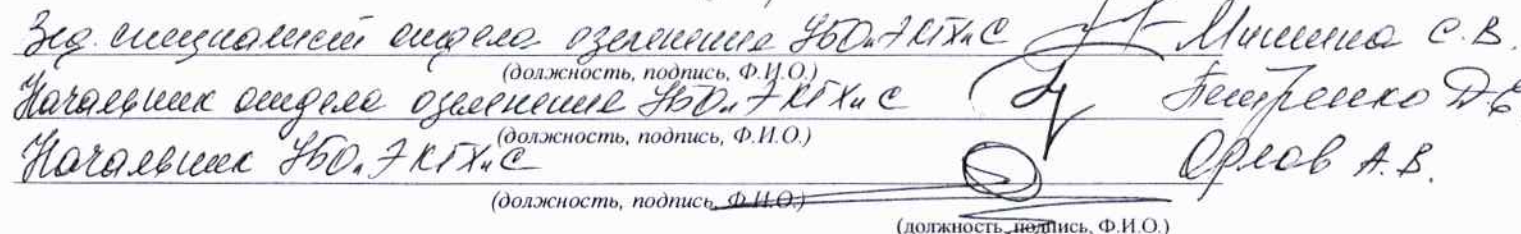 Вед. специалист отдела озеленения УБО и Э КГХ и С Мишина С.В.
(должность, подпись, Ф.И.О.)
Начальник отдела озеленения УБО и Э КГХ и С Петренко Д.Е.
(должность, подпись, Ф.И.О.)
Начальник УБО и Э КГХ и С Орлов А.В.
(должность, подпись, Ф.И.О.)
(должность, подпись, Ф.И.О.)